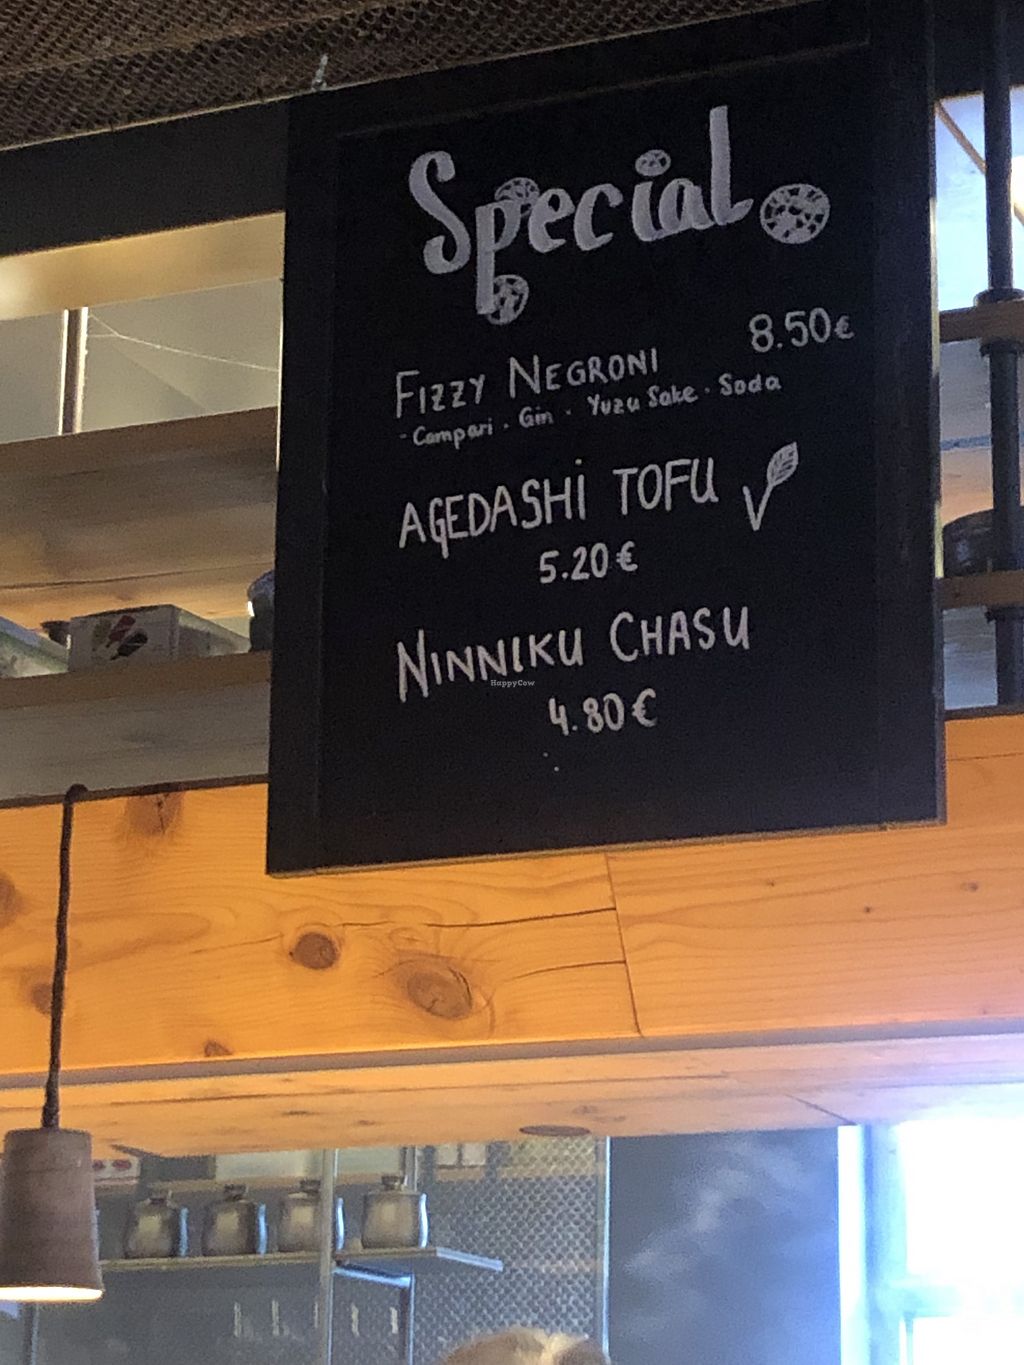 Special
FIZZY NEGRONI 8.50€
- Campari . Gin . Yuzu Sake . Soda
AGEDASHI TOFU V
5.20€
NINNIKU CHASU
4.80€
HappyCow